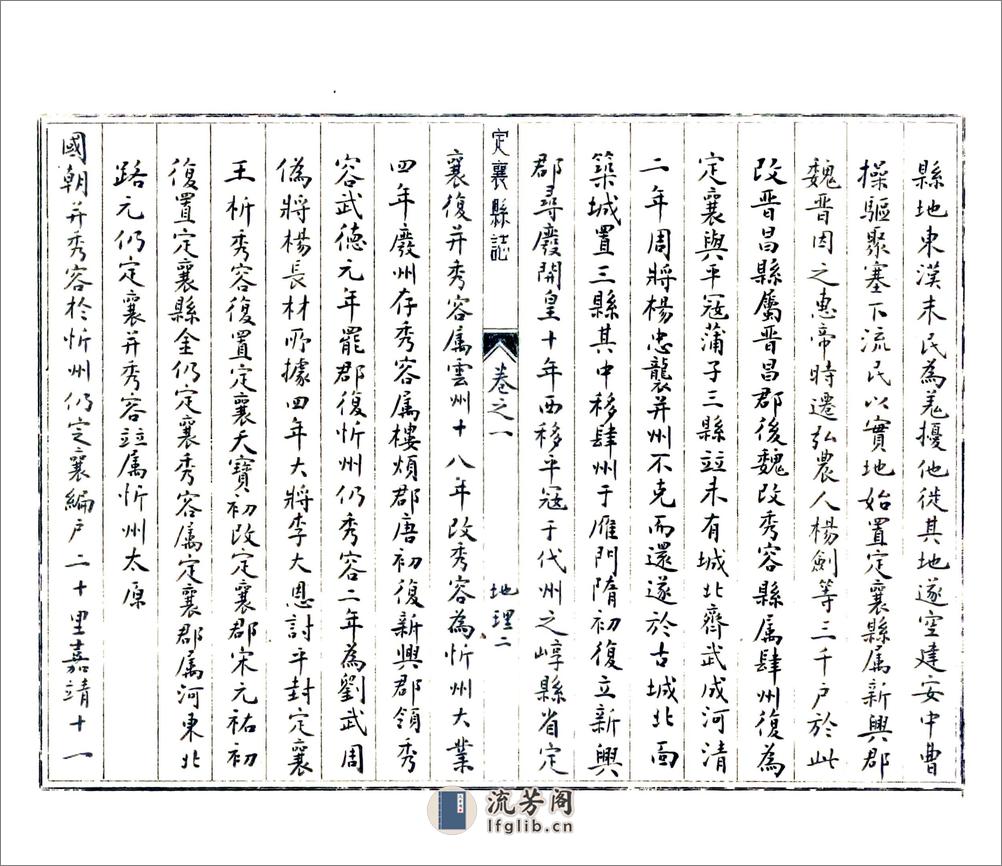 縣地東漢末民為羗擾他徙其地遂空建安中曹
操驅聚塞下流民以實地始置定襄縣属新興郡
魏晋因之惠帝時遷弘農人楊劍等三千户於此
改晋昌縣屬晋昌郡後魏改秀容縣属肆州復為
定襄與平冦蒲子三縣竝未有城北齊武成河清
二年周將楊忠襲并州不克而還遂於古城北面
築城置三縣其中移肆州于雁門隋初復立新興
郡尋廢開皇十年西移平冦于代州之崞縣省定
定襄縣誌
卷之一
地理二
襄復并秀容属雲州十八年改秀容為忻州大業
四年廢州存秀容属樓煩郡唐初復新興郡領秀
容武德元年罷郡復忻州仍秀容二年為劉武周
偽將楊長材所據四年大將李大恩討平封定襄
王析秀容復置定襄天寶初改定襄郡宋元祐初
復置定襄縣金仍定襄秀容属定襄郡属河東北
路元仍定襄并秀容竝属忻州太原
國朝并秀容於忻州仍定襄編户二十里嘉靖十一
流芳阁
lfglib.cn